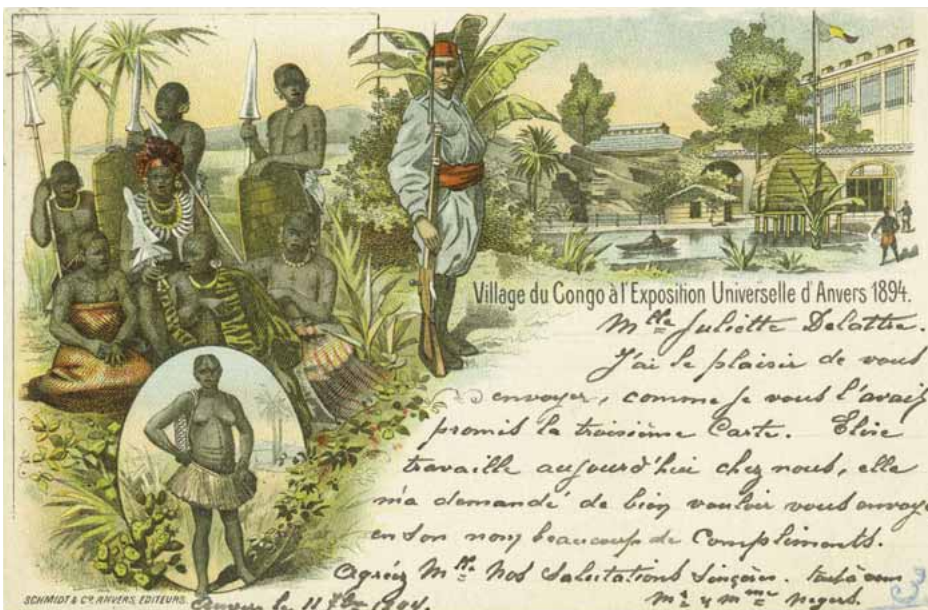 Village du Congo à l'Exposition Universelle d'Anvers 1894.
Mlle Juliette Delattre.
J'ai le plaisir de vous
envoyer, comme je vous l'avais
promis la troisième Carte. Elise
travaille aujourd'hui chez nous, elle
m'a demandé de bien vouloir vous envoye
en son nom beaucoup de Compliments.
Agréez Mlle Nos Salutations Sincères. tout à vous
Mr & Mme
SCHMIDT & Co. ANVERS, EDITEURS. Anvers le 11 7bre 1894.
3